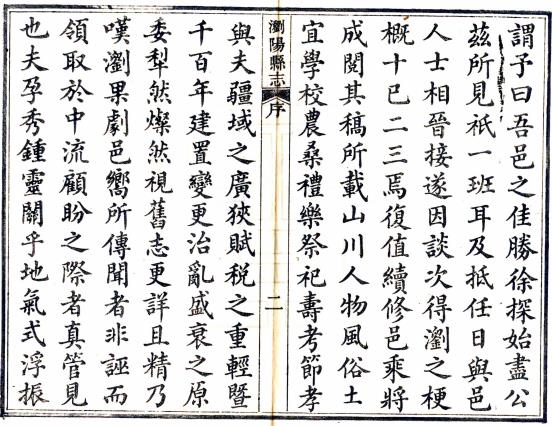 謂予曰吾邑之佳勝徐探始盡公
茲所見祇一班耳及抵任日與邑
人士相晉接遂因談次得瀏之梗
概十已二三焉復值續修邑乘將
成閱其稿所載山川人物風俗土
宜學校農桑禮樂祭祀壽考節孝
瀏陽縣志
序
二
與夫疆域之廣狹賦稅之重輕暨
千百年建置變更治亂盛衰之原
委犁然燦然視舊志更詳且精乃
嘆瀏果劇邑嚮所傳聞者非誣而
領取於中流顧盼之際者真管見
也夫孕秀鍾靈關乎地氣式浮振